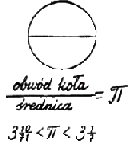 obwód koła
średnica
= π
3 10/71 < π < 3 1/7